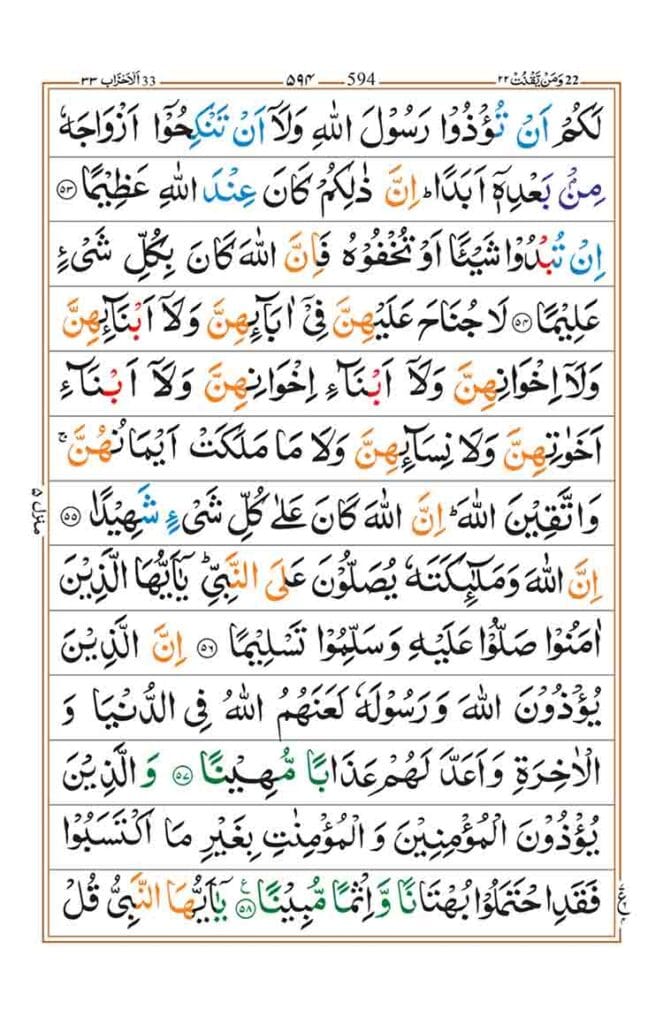 ٢٢ وَمَنْ يَّقْنُتْ 22 ۵۹۴ 594 ٣٣ اَلْاَحْزَاب 33
لَكُمْ اَنْ تُؤْذُوْا رَسُوْلَ اللّٰهِ وَلَاۤ اَنْ تَنْكِحُوْۤا اَزْوَاجَهٗ
مِنْۢ بَعْدِهٖۤ اَبَدًا ؕ اِنَّ ذٰلِكُمْ كَانَ عِنْدَ اللّٰهِ عَظِيْمًا ﴿۵۳﴾
اِنْ تُبْدُوْا شَيْـًٔا اَوْ تُخْفُوْهُ فَاِنَّ اللّٰهَ كَانَ بِكُلِّ شَيْءٍ
عَلِيْمًا ﴿۵۴﴾ لَا جُنَاحَ عَلَيْهِنَّ فِيْۤ اٰبَآئِهِنَّ وَلَاۤ اَبْنَآئِهِنَّ
وَلَاۤ اِخْوَانِهِنَّ وَلَاۤ اَبْنَآءِ اِخْوَانِهِنَّ وَلَاۤ اَبْنَآءِ
اَخَوٰتِهِنَّ وَلَا نِسَآئِهِنَّ وَلَا مَا مَلَكَتْ اَيْمَانُهُنَّ ۚ
وَاتَّقِيْنَ اللّٰهَ ؕ اِنَّ اللّٰهَ كَانَ عَلٰى كُلِّ شَيْءٍ شَهِيْدًا ﴿۵۵﴾
منزل ۵
اِنَّ اللّٰهَ وَمَلٰٓئِكَتَهٗ يُصَلُّوْنَ عَلَى النَّبِيِّ ؕ يٰۤاَيُّهَا الَّذِيْنَ
اٰمَنُوْا صَلُّوْا عَلَيْهِ وَسَلِّمُوْا تَسْلِيْمًا ﴿۵۶﴾ اِنَّ الَّذِيْنَ
يُؤْذُوْنَ اللّٰهَ وَرَسُوْلَهٗ لَعَنَهُمُ اللّٰهُ فِي الدُّنْيَا وَ
الْاٰخِرَةِ وَاَعَدَّ لَهُمْ عَذَابًا مُّهِيْنًا ﴿۵۷﴾ وَالَّذِيْنَ
يُؤْذُوْنَ الْمُؤْمِنِيْنَ وَالْمُؤْمِنٰتِ بِغَيْرِ مَا اكْتَسَبُوْا
فَقَدِ احْتَمَلُوْا بُهْتَانًا وَّاِثْمًا مُّبِيْنًا ﴿۵۸﴾ يٰۤاَيُّهَا النَّبِيُّ قُلْ